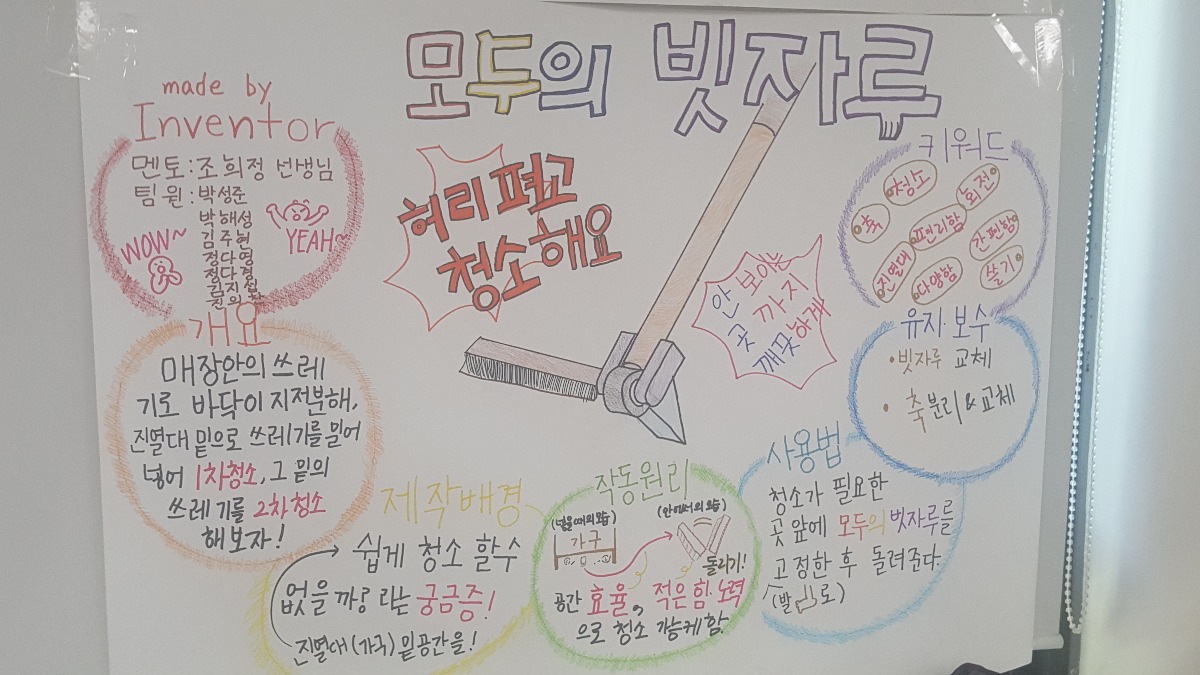 모두의 빗자루
made by
Inventor
멘토 : 조희정 선생님
팀원 : 박성준
박해성
김주현
정다영
정다경
WOW~
YEAH~
허리 펴고
청소해요
안 보이는
곳 까지
깨끗하게
키워드
청소
회전
축
편리함
간편함
진열대
다양함
쓸기
개요
매장안의 쓰레
기로 바닥이 지저분해,
진열대 밑으로 쓰레기를 밀어
넣어 1차청소, 그 밑의
쓰레기를 2차 청소
해보자!
제작배경
쉽게 청소 할수
없을까? 라는 궁금증!
진열대(가구) 밑공간을!
작동원리
(넣을때의 모습)
(안에서의 모습)
가구
돌리기!
공간 효율, 적은 힘·노력
으로 청소 가능케 함.
사용법
청소가 필요한
곳 앞에 모두의 빗자루를
고정한 후 돌려준다.
(발로)
유지·보수
•빗자루 교체
• 축 분리 & 교체